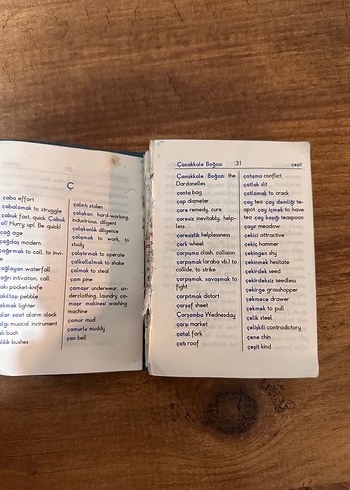 Ç
çaba effort
çabalamak to struggle
çabuk fast, quick Çabuk
ol! Hurry up!, Be quick!
çağ age
çağdaş modern
çağırmak to call, to invi-
te
çağlayan waterfall
çağrı invitation, call
çakı pocket-knife
çakıltaşı pebble
çakmak lighter
çalar saat alarm clock
çalgı musical instrument
çalı bush
çalılık bushes
çalıntı stolen
çalışkan hard-working,
industrious, diligent
çalışkanlık diligence
çalışmak to work, to
study
çalıştırmak to operate
çalkalamak to shake
çalmak to steal
çam pine
çamaşır underwear, un-
derclothing, laundry ça-
maşır makinesi washing
machine
çamur mud
çamurlu muddy
çan bell
Çanakkale Boğazı 31 çeşit
Çanakkale Boğazı the
Dardanelles
çanta bag
çap diameter
çare remedy, cure
çaresiz inevitably, help-
less
çaresizlik helplessness
çark wheel
çarpışma clash, collision
çarpışmak (araba vb.) to
collide, to strike
çarpışmak, savaşmak to
fight
çarpıtmak distort
çarşaf sheet
Çarşamba Wednesday
çarşı market
çatal fork
çatı roof
çatışma conflict
çatlak slit
çatlamak to crack
çay tea çay demliği te-
apot çay içmek to have
tea çay kaşığı teaspoon
çayır meadow
çekici attractive
çekiç hammer
çekingen shy
çekinmek hesitate
çekirdek seed
çekirdeksiz seedless
çekirge grasshopper
çekmece drawer
çekmek to pull
çelik steel
çelişkili contradictory
çene chin
çeşit kind